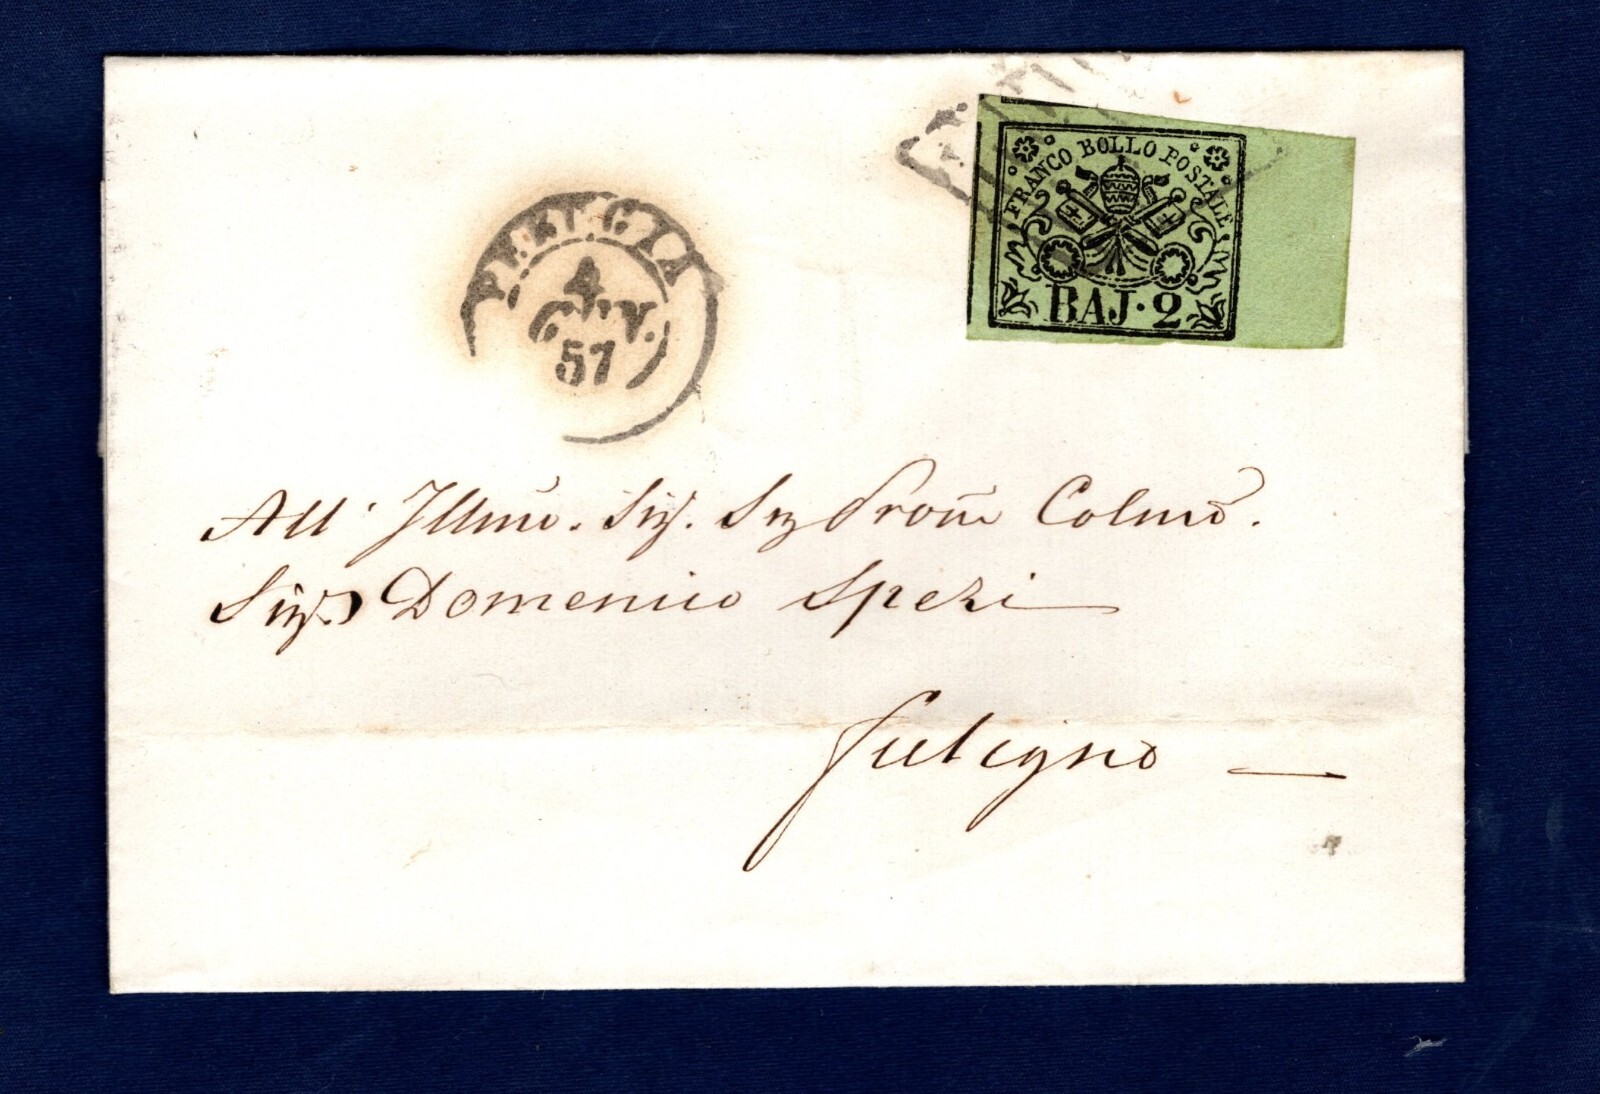 PERUGIA
4
GIU.
57
FRANCO BOLLO POSTALE
BAJ·2
All' Illmo. Sig. Sig Prom Colmo.
Sig. Domenico Spezi
Fuligno